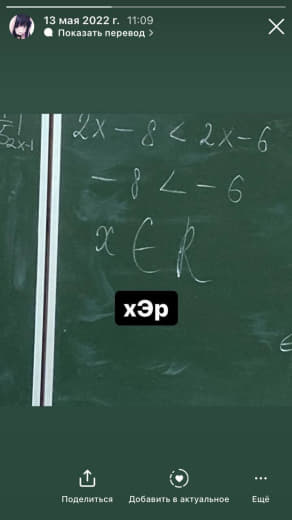 13 мая 2022 г. 11:09
Показать перевод >
2x - 8 < 2x - 6
- 8 < - 6
x ∈ R
хЭр
Поделиться
Добавить в актуальное
Ещё